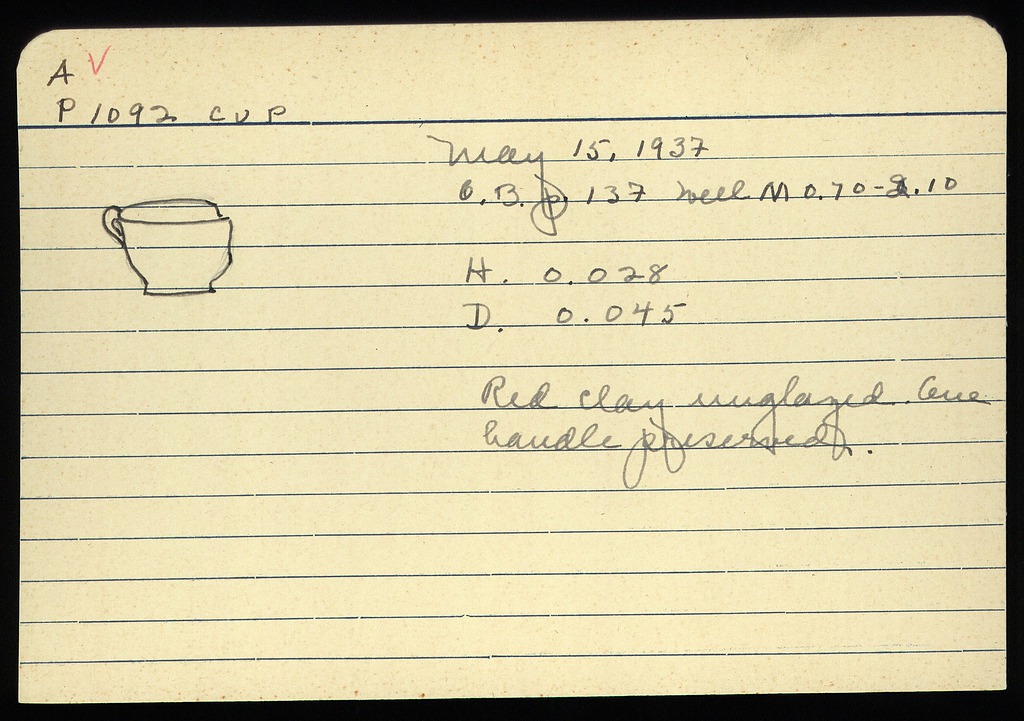 A V
P 1092 CUP
May 15, 1937
O.B. p. 137 Well M 0.70-2.10
H. 0.028
D. 0.045
Red clay unglazed. One
handle preserved.